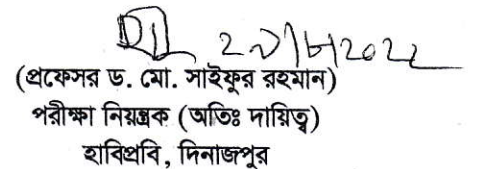 (প্রফেসর ড. মো. সাইফুর রহমান)
পরীক্ষা নিয়ন্ত্রক (অতিঃ দায়িত্ব)
হাবিপ্রবি, দিনাজপুর